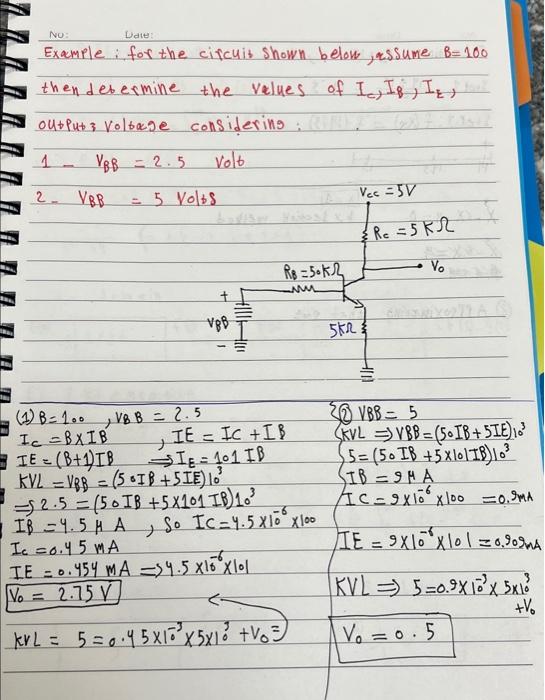 No: Date:
Example : for the circuit shown below, assume B=100
then determine the values of Ic, IB, IE,
output; voltage considering :
1 - VBB = 2.5 Volt
2 - VBB = 5 Volts
Vcc = 5V
Rc = 5KΩ
Vo
RB = 50KΩ
+
VBB
-
5KΩ
(1) B=100 , VBB = 2.5
Ic = B×IB , IE = Ic + IB
IE = (B+1)IB ⇒ IE = 101 IB
KVL = VBB = (50IB + 5IE)10³
⇒ 2.5 = (50IB + 5×101 IB)10³
IB = 4.5 μA , So Ic = 4.5×10⁻⁶ ×100
Ic = 0.45 mA
IE = 0.454 mA ⇒ 4.5×10⁻⁶×101
Vo = 2.75 V
KVL = 5 = 0.45×10⁻³×5×10³ + Vo =
② VBB = 5
KVL ⇒ VBB = (50IB + 5IE)10³
5 = (50IB + 5×101IB)10³
IB = 9 μA
IC = 9×10⁻⁶ ×100 = 0.9mA
IE = 9×10⁻⁶×101 = 0.909mA
KVL ⇒ 5 = 0.9×10⁻³ × 5×10³
+Vo
Vo = 0.5